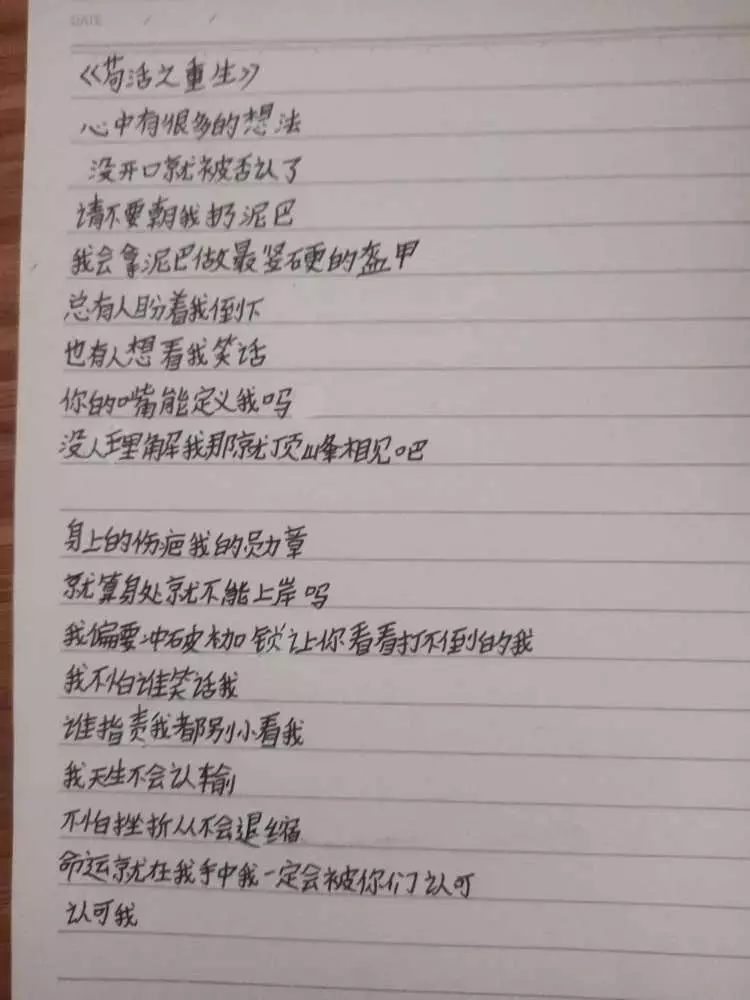 DATE / /
《苟活之重生》
心中有很多的想法
没开口就被否认了
请不要朝我扔泥巴
我会拿泥巴做最坚硬的盔甲
总有人盼着我倒下
也有人想看我笑话
你的嘴能定义我吗
没人理解我那就顶峰相见吧
身上的伤疤我的勋章
就算身处就不能上岸吗
我偏要冲破枷锁让你看看打不倒的我
我不怕谁笑话我
谁指责我都别小看我
我天生不会认输
不怕挫折从不会退缩
命运就在我手中我一定会被你们认可
认可我